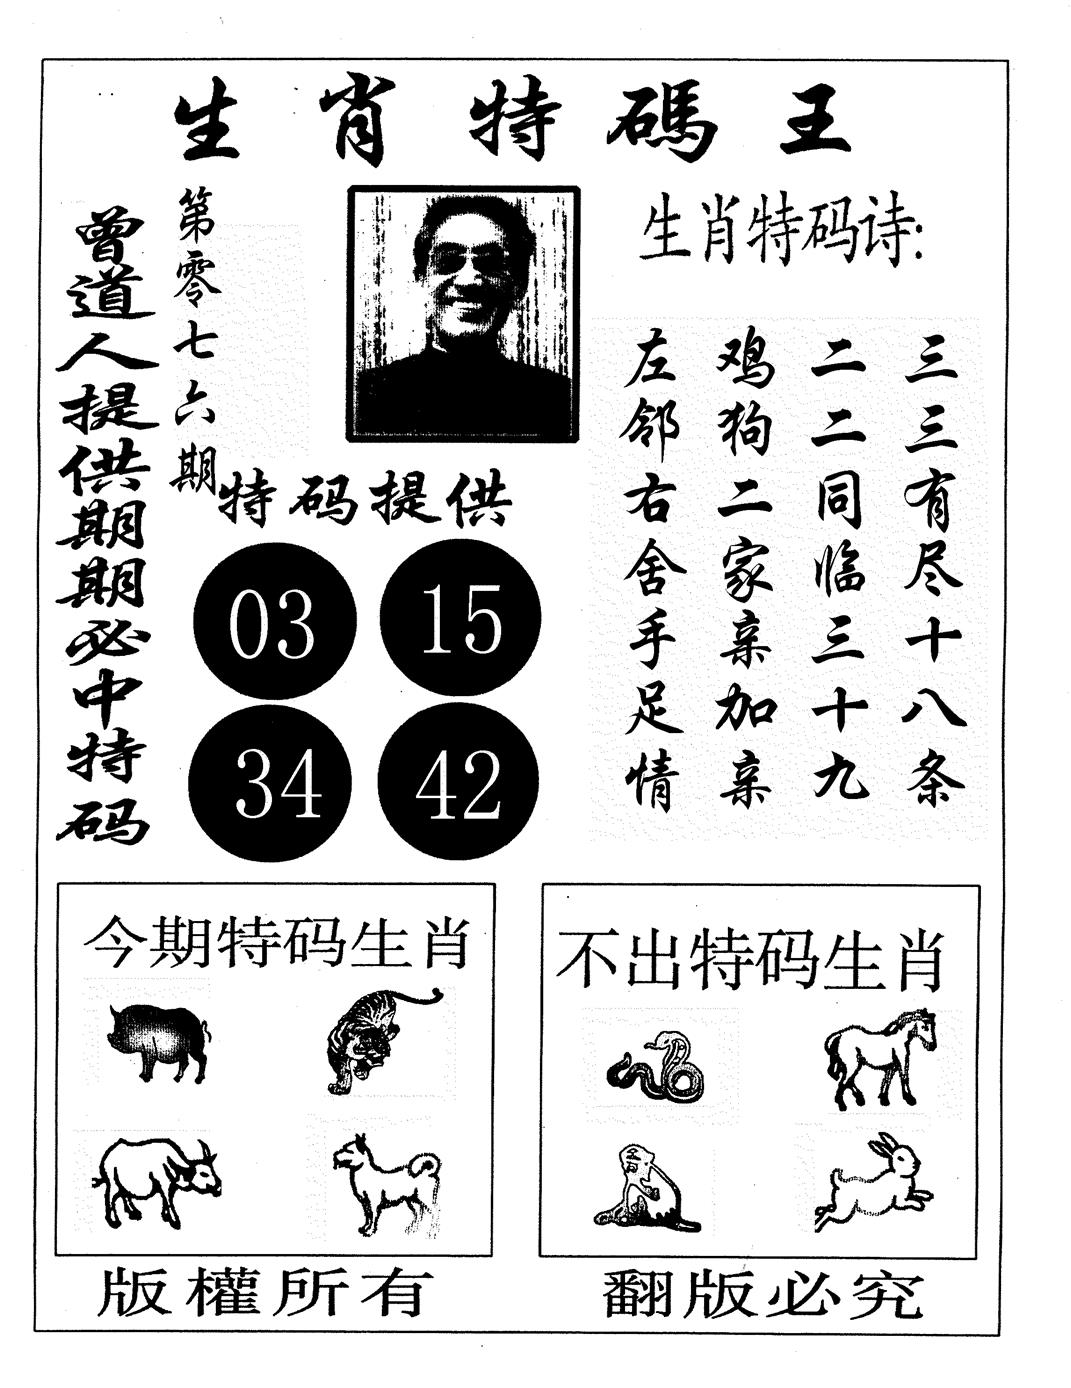 生肖特碼王
曾道人提供期期必中特码
第零七六期
生肖特码诗:
三三有尽十八条
二二同临三十九
鸡狗二家亲加亲
左邻右舍手足情
特码提供
03 15
34 42
今期特码生肖
不出特码生肖
版權所有
翻版必究